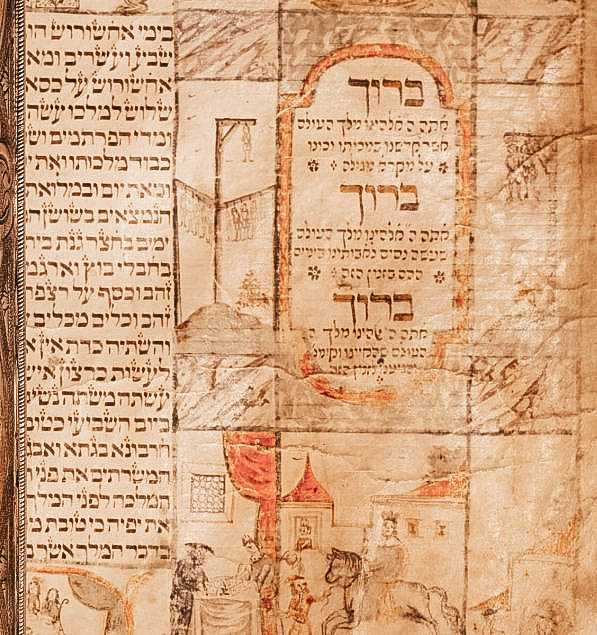 ברוך
אתה ה' אלהינו מלך העולם
אשר קדשנו במצותיו וצונו
על מקרא מגילה
ברוך
אתה ה' אלהינו מלך העולם
שעשה נסים לאבותינו בימים
ההם בזמן הזה
ברוך
אתה ה' אלהינו מלך ה
העולם שהחיינו וקימנו
והגיענו לזמן הזה
בימי אחשורוש הו
שבע ועשרים ומא
אחשורוש על כסא
שלוש למלכו עשה
ומדי הפרתמים וש
כבוד מלכותו ואת י
ומאת יום ובמלואת
הנמצאים בשושן ה
ימים בחצר גנת בית
בחבלי בוץ וארגמ
זהב וכסף על רצפת
זהב וכלים מכלים
והשתיה כדת אין א
לעשות כרצון איש
עשתה משתה נשים
ביום השביעי כטוב
חרבונא בגתא ואבג
המשרתים את פני ה
המלכה לפני המלך
את יפיה כי טובת מ
בדבר המלך אשר ב